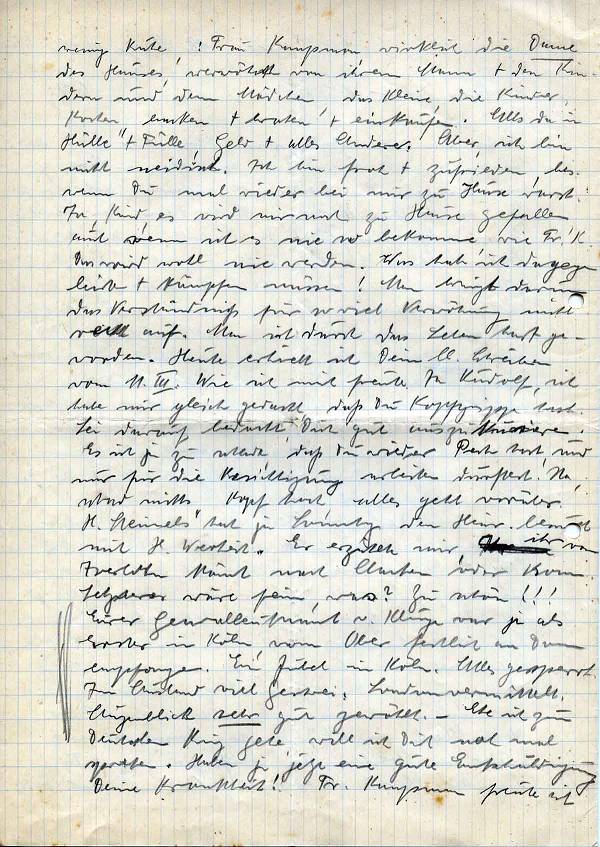 wenig Ruhe! Frau Kaufmann wirklich die Dame
des Hauses, verwöhnt von ihrem Mann + den Kin-
dern und dem Mädchen das Kleine, die Kinder,
Kochen backen + braten + einkaufen. Alles da in
Hülle + Fülle, Geld + alles Andere. Aber, ich bin
nicht neidisch. Ich bin froh + zufrieden, bes.
wenn Du mal wieder bei mir zu Hause warst.
Ja, Kind, es wird mir auch zu Hause gefallen
auch wenn ich es nie so bekomme wie Fr. K.
Das wird wohl nie werden. Was hab' ich dagegen
leiden + kämpfen müssen! Man bringt darum
das Verständnis für so viel Verwöhnung nicht
recht auf. Man ist durch das Leben hart ge-
worden. Heute erhielt ich Dein lb. Schreiben
vom 11. III. Wie ich mich freute. Ja Rudolf, ich
habe mir gleich gedacht, daß Du Kopfgrippe hast.
Sei darauf bedacht, Dich gut auszukurieren.
Es ist ja zu schade, daß Du wieder Pech hast, und
nur für die Besichtigung arbeiten durftest. Na,
schad nichts Kopf hoch alles geht vorüber.
H. Steinels hat ja den Heinr.
mit H. Er erzählte mir, ihr von
nach Aachen oder Bonn.
Letzterer wäre fein, was? Zu schön!!!
Eurer Generalleutnant v. Kluge war ja als
Erster in Köln, vom Ober festlich am Dom
empfangen. Ein Jubel in Köln. Alles gesperrt.
Im Ausland viel Geschrei. London vermittelt.
Augenblick sehr gut gewählt. – Ehe ich zum
Deutschen Ring gehe, will ich Dich noch mal
sprechen. Haben ja jetzt eine gute Entschuldigung
Deine Krankheit! Fr. Kaufmann freute sich